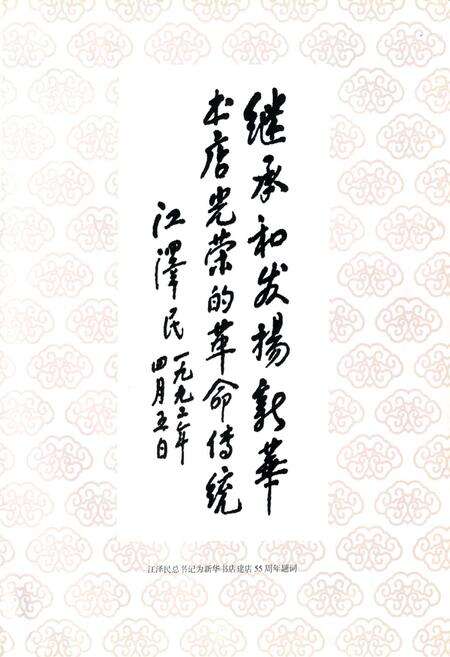 继承和发揚新華
书店光荣的革命传统
江澤民
一九九二年
四月五日
江泽民总书记为新华书店建店 55 周年题词